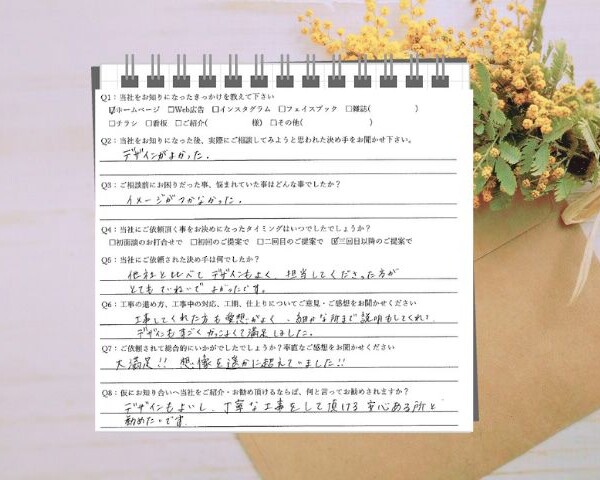 Q1：当社をお知りになったきっかけを教えて下さい
☑ホームページ □Web広告 □インスタグラム □フェイスブック □雑誌(　　　)
□チラシ □看板 □ご紹介(　　　様) □その他(　　　)
Q2：当社をお知りになった後、実際にご相談してみようと思われた決め手をお聞かせ下さい。
デザインがよかった。
Q3：ご相談前にお困りだった事、悩まれていた事はどんな事でしたか？
イメージがつかなかった。
Q4：当社にご依頼頂く事をお決めになったタイミングはいつでしたでしょうか？
□初面談のお打合せで □初回のご提案で □二回目のご提案で ☑三回目以降のご提案で
Q5：当社にご依頼された決め手は何でしたか？
他社と比べて デザインもよく、担当してくださった方が
とてもていねいで よかったです。
Q6：工事の進め方、工事中の対応、工期、仕上りについてご意見・ご感想をお聞かせください
工事してくれた方も愛想がよく、細かな所まで説明もしてくれて
デザインもすごくかっこよくて満足しました。
Q7：ご依頼されて総合的にいかがでしたでしょうか？率直なご感想をお聞かせください
大満足!! 想像を遥かに超えていました!!
Q8：仮にお知り合いへ当社をご紹介・お勧め頂けるならば、何と言ってお勧めされますか？
デザインもよいし、丁寧な工事をして頂ける 安心ある所と
勧めたいです。